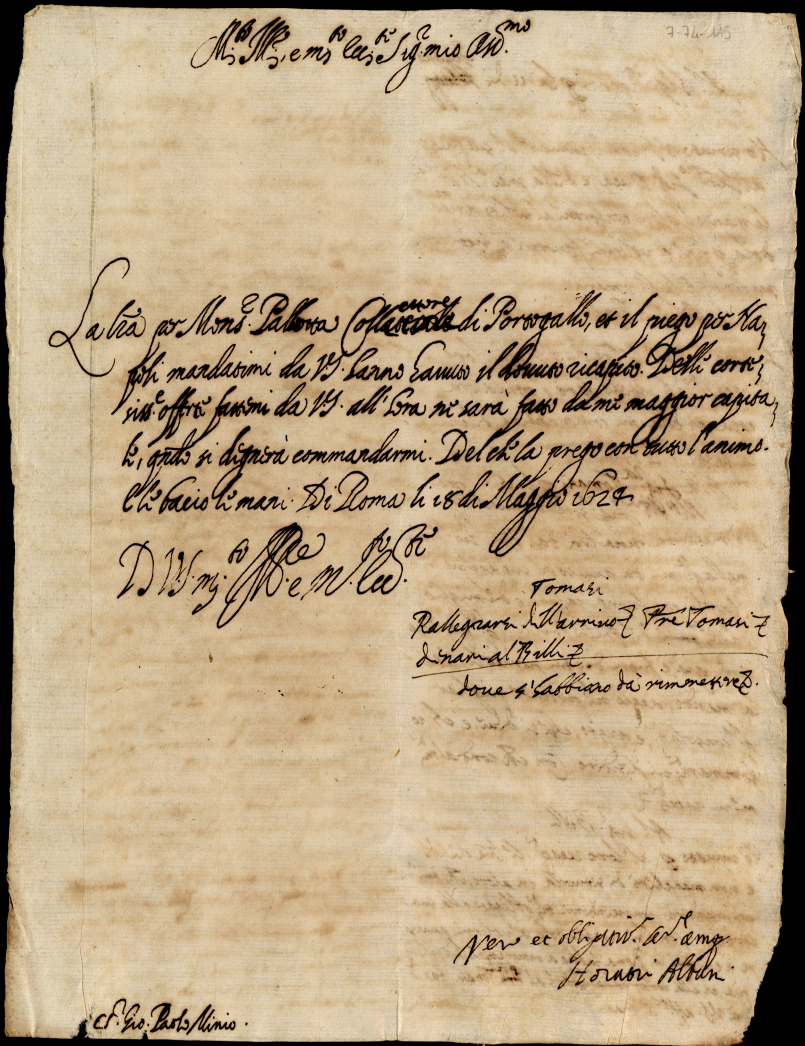 7-74-115
Mto Mco, e mto eccte Sigr mio Ossmo
La lra per Monsr Pallotta Collettore di Portogallo, et il piego per Na,
poli mandatimi da VS. hanno havuto il douuto ricapito. Delle corte,
sisse offerte fattemi da VS. all' hora ne sarà fatto da me maggior capita,
le, qndo si degnerà commandarmi. Del che la prego con tutto l'animo.
E le bacio le mani. Di Roma li 18 di Maggio 1624
D VS. mto Mca e m. ecc.
Tomasi
Rallegrarsi dell'arriuo Pre Tomasi
denari al Billi
doue s'habbiano da rimettere.
Vero et obligatiss. amo
Horatio Albani
Sr. Gio: Paolo Minio.